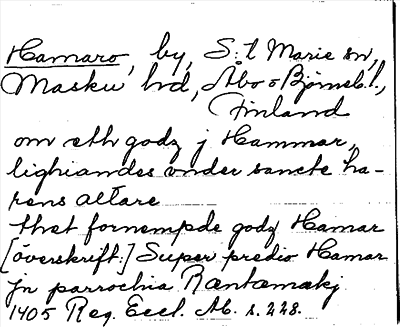 Hamaro, by, S:t Marie sn,
Masku hd, Åbo o Björneb. l.,
Finland
om eth godz j Hammar,
lighiandes vnder sancte ka-
rens altare
thet fornempde godz Hamar
[överskrift:] Super predio Hamar
jn parrochia Ræntamækj
1405 Reg. Eccl. Ab. s. 228.